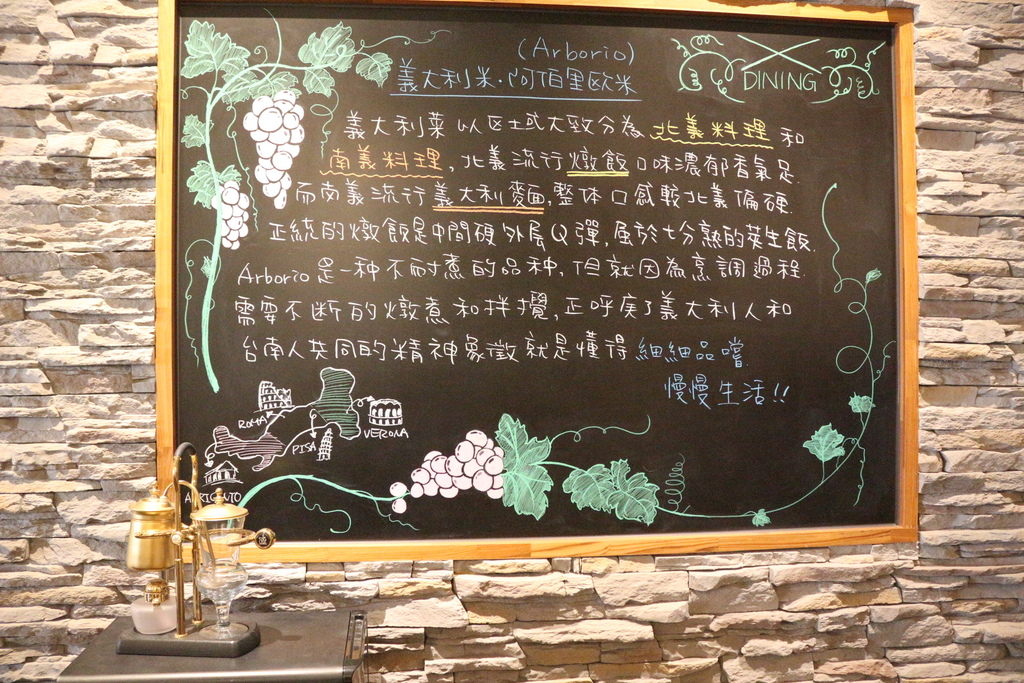 (Arborio)
義大利米·阿伯里歐米
DINING
義大利菜以区土或大致分為北義料理和
南義料理,北義流行燉飯口味濃郁香氣足.
而南義流行義大利麵,整体口感較北義偏硬.
正統的燉飯是中間硬外层Q彈,屬於七分熟的英生飯.
Arborio是一种不耐煮的品种,但就因為烹調過程
需要不断的燉煮和拌攪,正呼应了義大利人和
台南人共同的精神象徵就是懂得細細品嚐
慢慢生活!!
ROMA
VERONA
PISA
AGRIGENTO